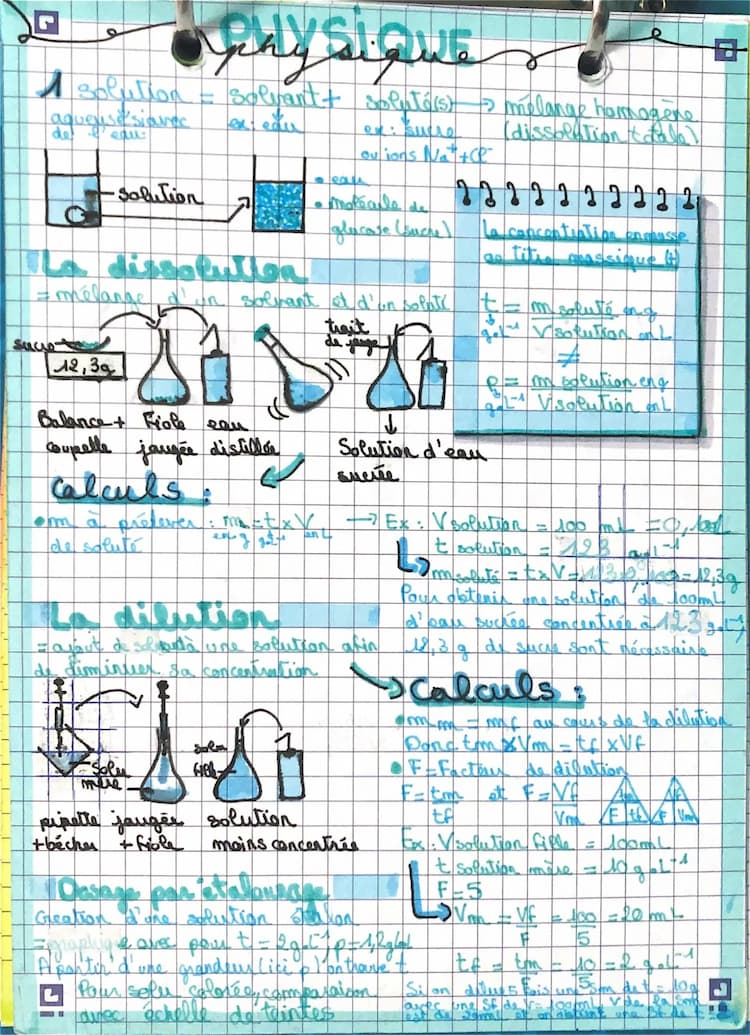 PHYSIQUE
physique
1 solution = solvant + soluté(s) → mélange homogène
aqueuse si avec ex: eau ex: sucre (dissolution totale)
de l'eau ou ions Na⁺+Cl⁻
solution
• eau
• molécule de
glucose (sucre)
La concentration en masse
ou titre massique (t)
t = m soluté en g
g.L⁻¹ V solution en L
≠
ρ = m solution en g
g.L⁻¹ V solution en L
La dissolution
= mélange d'un solvant et d'un soluté
sucre
12,3g
trait
de jauge
Balance + Fiole eau
coupelle jaugée distillée
Solution d'eau
sucrée
Calculs :
• m à prélever : m = t x V
de soluté en g g.L⁻¹ en L
→ Ex : V solution = 100 mL = 0,100L
t solution = 123 g.L⁻¹
m soluté = t x V = 123 x 0,100 = 12,3g
Pour obtenir une solution de 100mL
d'eau sucrée concentrée à 123 g.L⁻¹,
12,3 g de sucre sont nécessaire
La dilution
= ajout de solvant à une solution afin
de diminuer sa concentration
solu
mère
solu
fille
pipette jaugée solution
+bécher +fiole moins concentrée
Calculs :
• mm = mf au cours de la dilution
Donc tm x Vm = tf x Vf
• F = Facteur de dilution
F = tm et F = Vf
tf Vm
tm
F tf
Vf
F Vm
Ex : V solution fille = 100mL
t solution mère = 10 g.L⁻¹
F = 5
Vm = Vf = 100 = 20 mL
F 5
tf = tm = 10 = 2 g.L⁻¹
F 5
Si on dilue 5 fois une Sm de t = 10g
avec une Sf de V = 100mL, V de la Sm
est de 20mL et on obtient une Sf de t =
Dosage par étalonnage
Création d'une solution étalon
= graphique avec pour t = 2g.L⁻¹, ρ = 1,2g/mL
A partir d'une grandeur (ici ρ) on trouve t
Pour solu colorée, comparaison
avec échelle de teintes